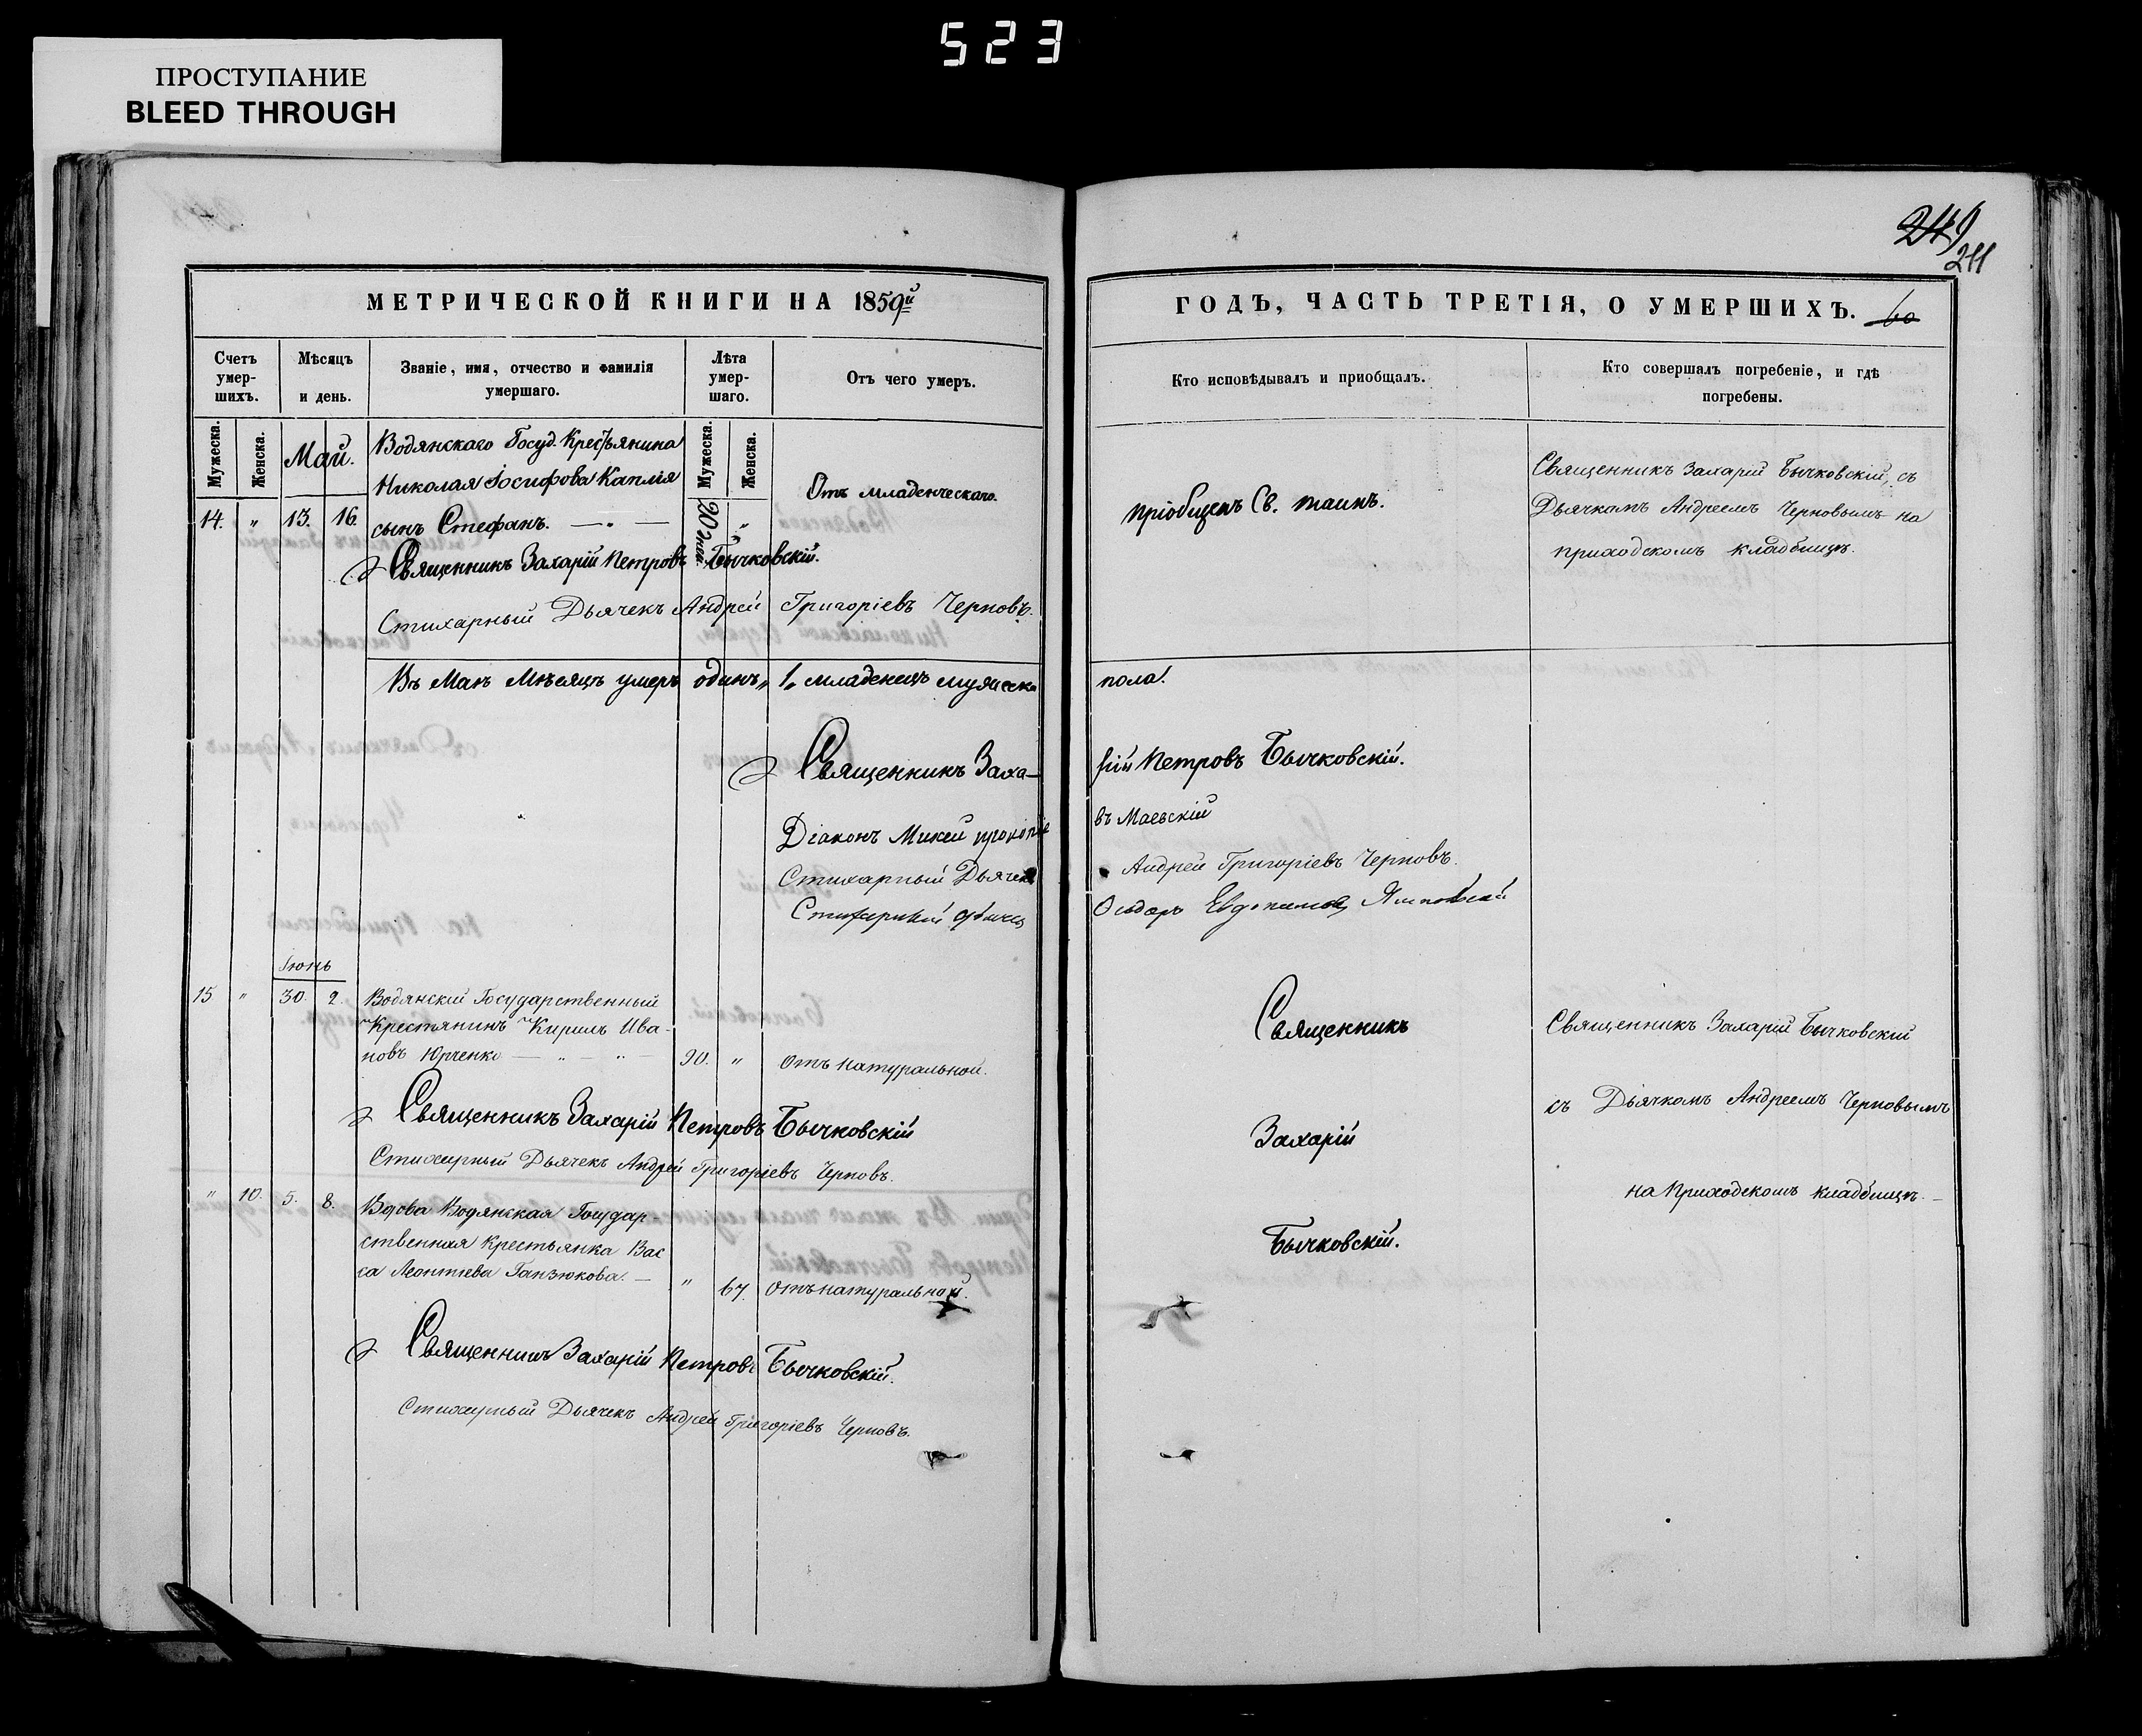 523
ПРОСТУПАНИЕ
BLEED THROUGH
249
211
МЕТРИЧЕСКОЙ КНИГИ НА 1859й
Счетъ умер-шихъ.
Мѣсяцъ и день.
Званіе, имя, отчество и фамилія умершаго.
Лѣта умер-шаго.
Отъ чего умеръ.
Мужеска.
Женска.
Май.
Мужеска.
Женска.
Водянскаго Госуд. Крестьянина
Николая Іосифова Капля
14. " 13. 16. сынъ Стефанъ. — " — 20 "
Отъ младенческаго.
Священникъ Захарій Петровъ Бычковскій.
Стихарный Дьячекъ Андрей Григоріевъ Черновъ.
Въ Маѣ Мѣсяцѣ умеръ одинъ, 1, младенецъ мужеска
Священникъ Заха-
Діаконъ Микей Прокопіе
Стихарный Дьячекъ
Стихарный
Іюнь
15 " 30. 2. Водянскій Государственный
Крестянинъ Кирилъ Ива-
новъ Юрченко — " — " — 90. " Отъ натуральной.
Священникъ Захарій Петровъ Бычковскій
Стихарный Дьячекъ Андрей Григоріевъ Черновъ.
" 10. 5. 8. Вдова Водянская Государ-
ственная крестьянка Вас
са Леонтіева Ганзюкова. — " 67. Отъ натуральной.
Священникъ Захарій Петровъ Бычковскій.
Стихарный Дьячекъ Андрей Григоріевъ Черновъ.
ГОДЪ, ЧАСТЬ ТРЕТІЯ, О УМЕРШИХЪ. 60
Кто исповѣдывалъ и приобщалъ.
Кто совершалъ погребеніе, и гдѣ погребены.
пріобщенъ Св. таинъ.
Священникъ Захарій Бычковскій, съ
Дьячкомъ Андреемъ Черновымъ на
приходскомъ кладбищѣ.
пола.
рій Петровъ Бычковскій.
въ Маевскій
Андрей Григоріевъ Черновъ.
Священникъ
Захарій
Бычковскій.
Священникъ Захарій Бычковскій
съ Дьячкомъ Андреемъ Черновымъ
на Приходскомъ кладбищѣ. —